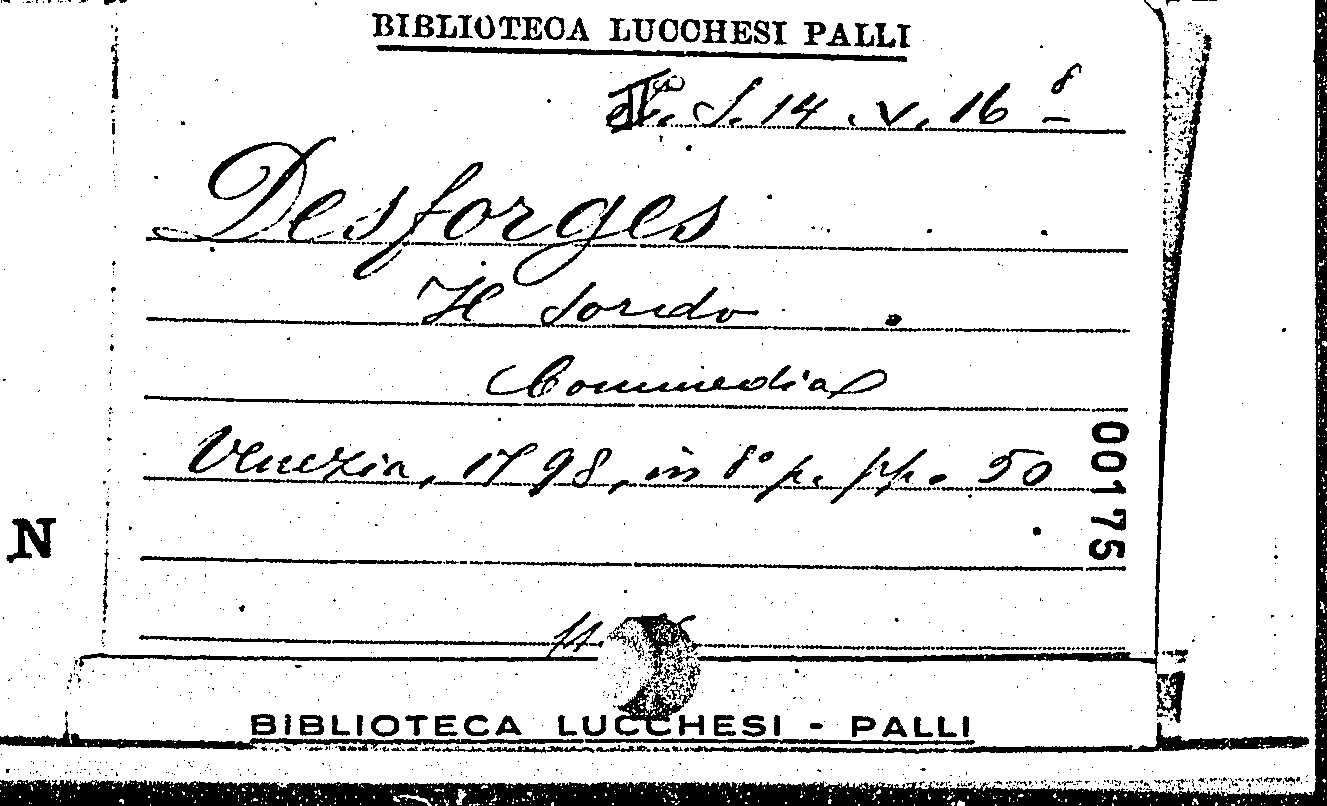 BIBLIOTECA LUCCHESI PALLI
S. 14 . V. 16 8
Desforges
Il Sordo
Commedia
Venezia, 1798, in 8° p. pp. 50
00175
N
BIBLIOTECA LUCCHESI - PALLI